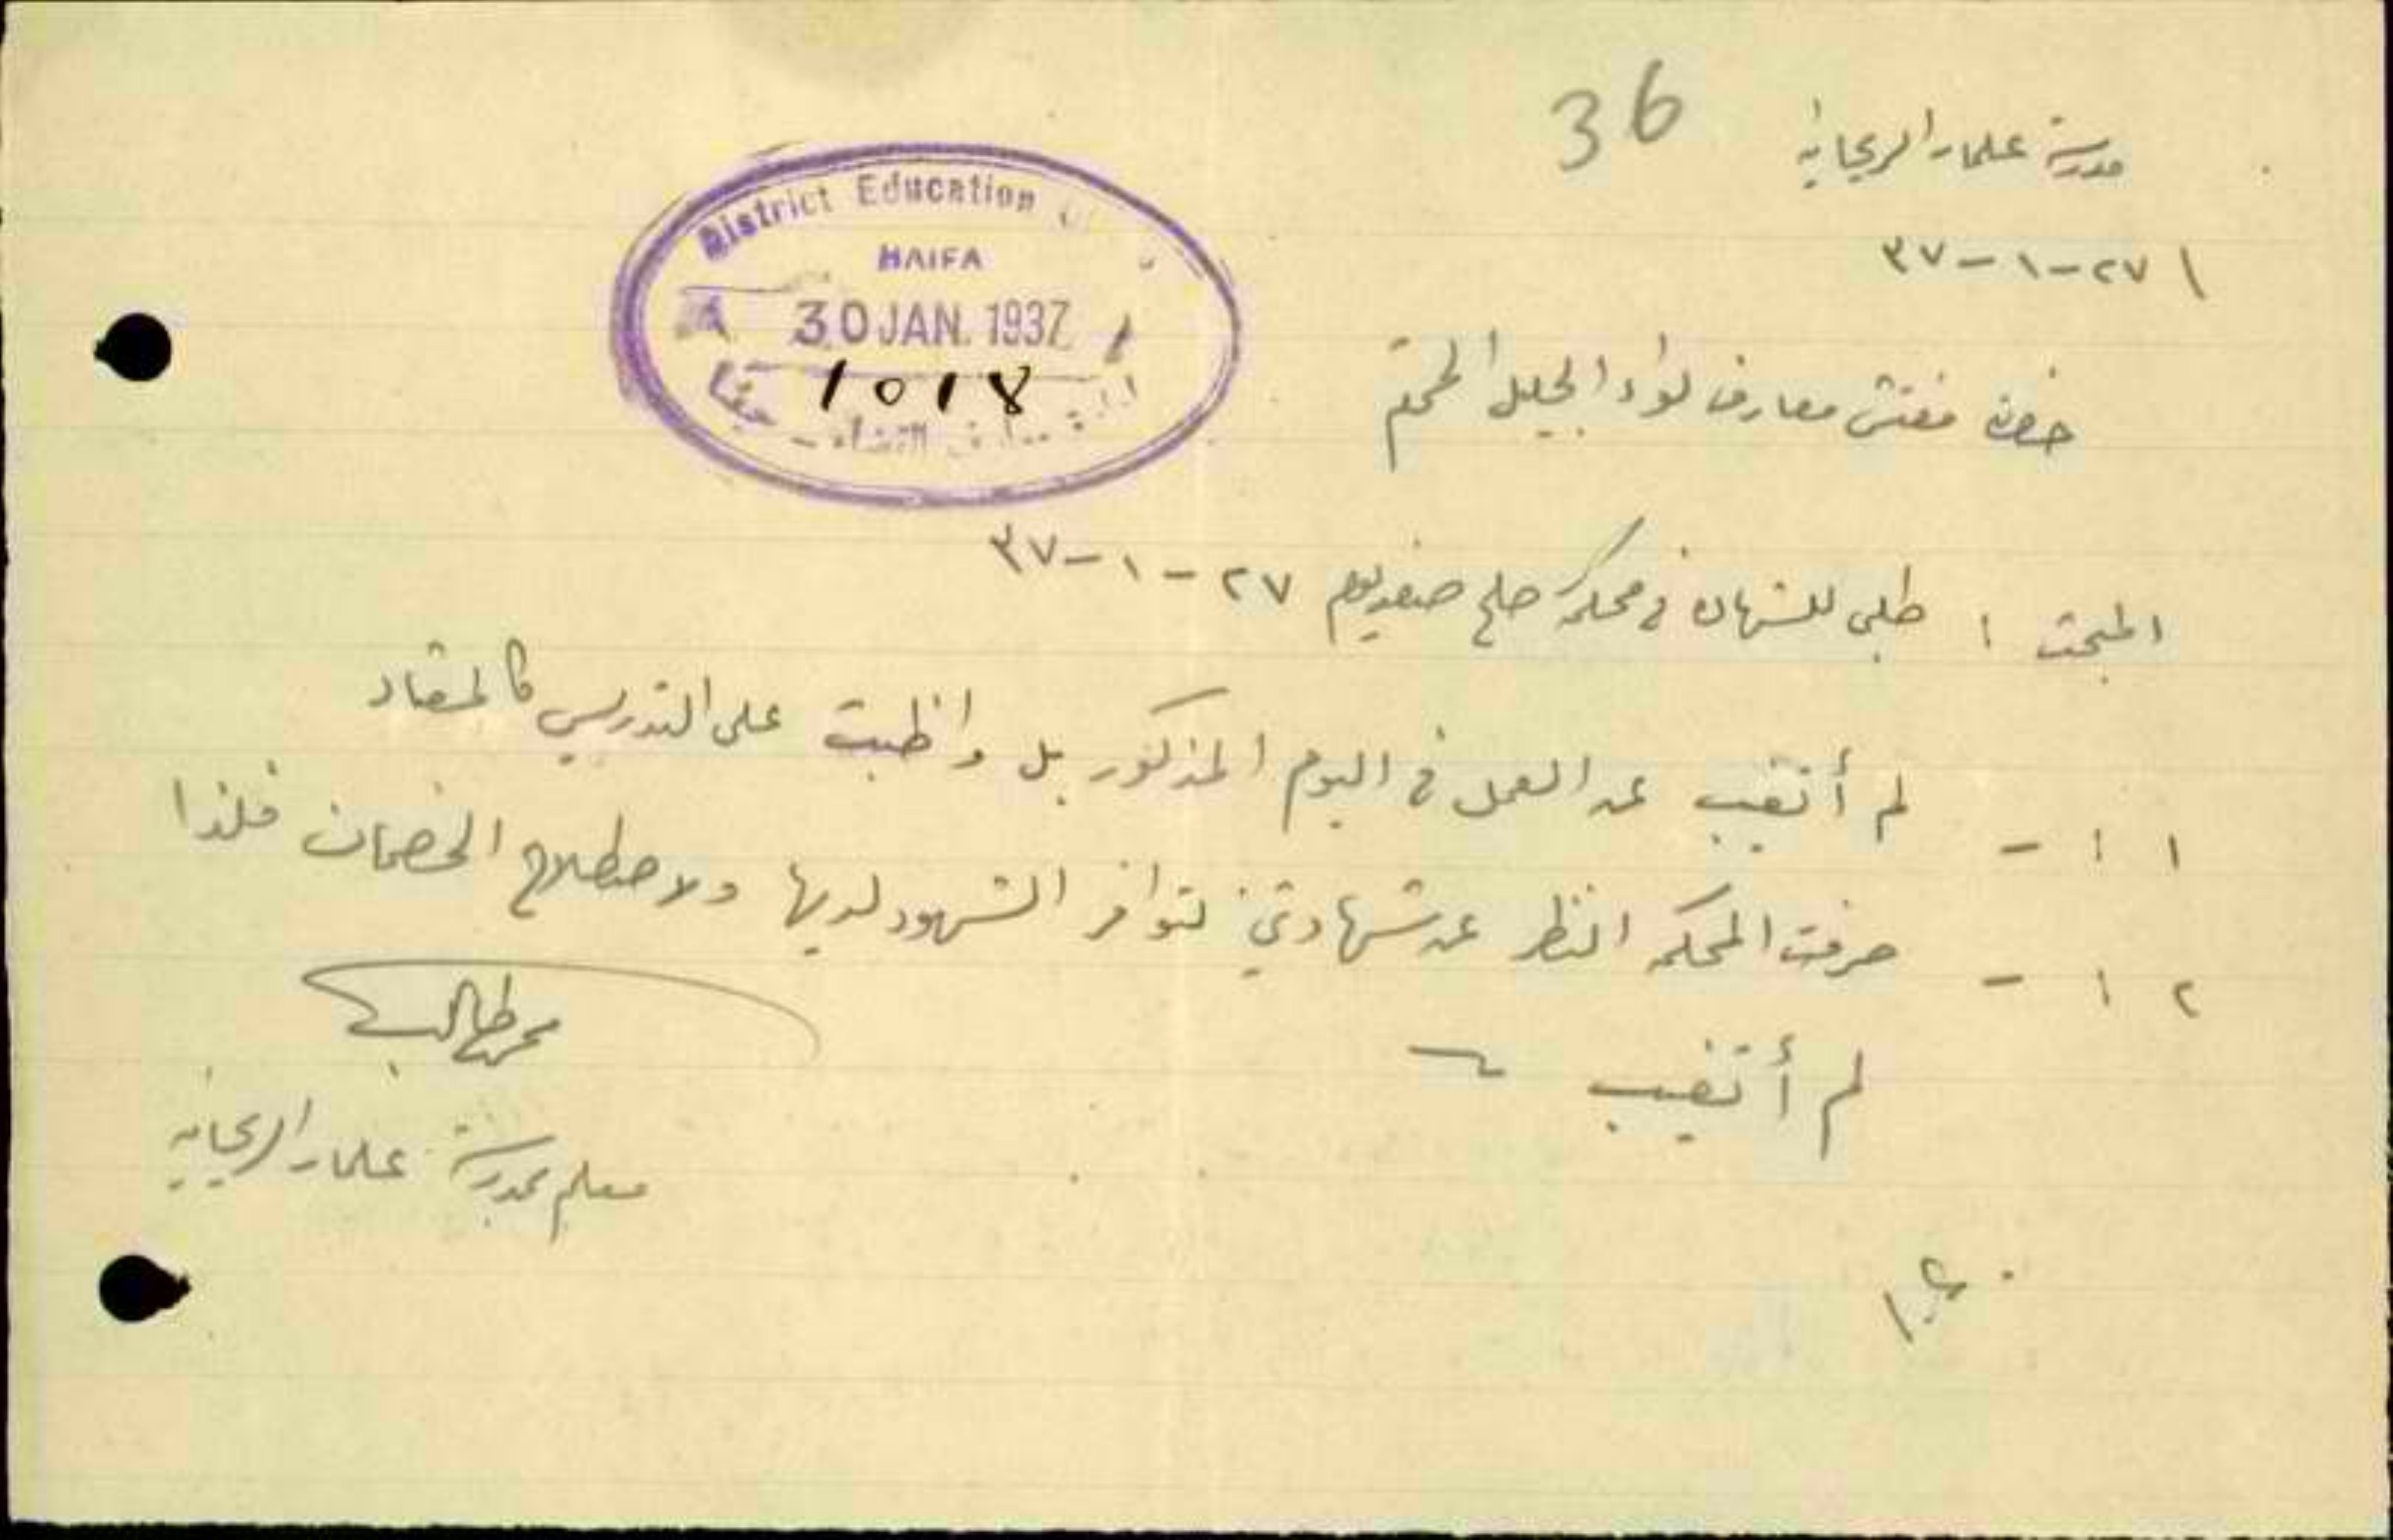 36
مدرسة علما والريحانية
٢٧-١-٣٧
District Education
HAIFA
30 JAN. 1937
1018
حيفا
حضرة مفتش معارف لواء الجليل المحترم
المبحث : طلبي للشهادة في محكمة صلح صفد يوم ٢٧-١-٣٧
١ :- لم أتغيب عن العمل في اليوم المذكور بل واظبت على التدريس كالمعتاد
٢ :- صرفت المحكمة النظر عن شهادتي لتوافر الشهود لديها ولاصطلاح الخصمان فلذا
لم أتغيب
محمد طالب
معلم مدرسة علما والريحانية